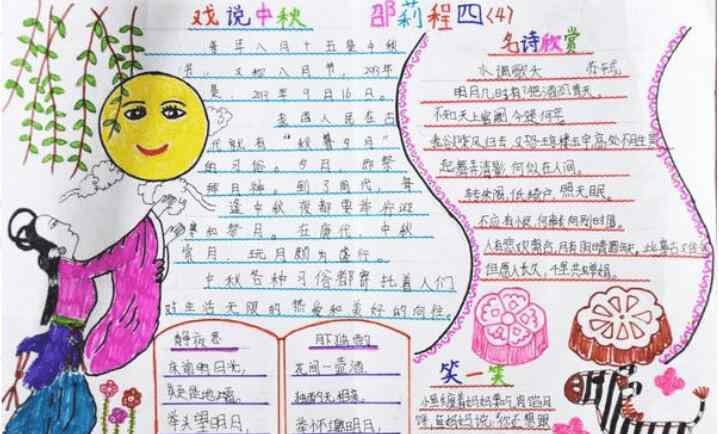 戏说中秋 邵莉程四(4)
每年八月十五是中秋
节，又称八月节，2013年
是，2013年9月16日。
我国人民在古
代就有“秋暮夕月”
的习俗。夕月，即祭
拜月神。到了周代，每
逢中秋夜都要举行迎
寒和祭月。在唐代，中秋
赏月、玩月颇为盛行。
中秋各种习俗都寄托着人们
对生活无限的热爱和美好的向往。
静夜思
床前明月光，
疑是地上霜。
举头望明月，
月下独酌
花间一壶酒，
独酌无相亲。
举杯邀明月，
名诗欣赏
水调歌头 苏轼
明月几时有？把酒问青天。
不知天上宫阙，今夕是何年。
我欲乘风归去，又恐琼楼玉宇，高处不胜寒
起舞弄清影，何似在人间。
转朱阁，低绮户，照无眠。
不应有恨，何事长向别时圆。
人有悲欢离合，月有阴晴圆缺，此事古难全
但愿人长久，千里共婵娟。
笑一笑